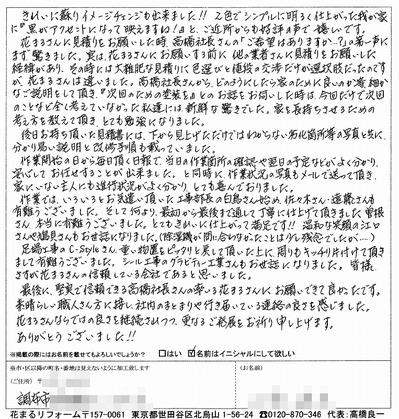 きれいに蘇りイメージチェンジも出来ました!! 2色でシンプルに明るく仕上がった我が家
に『黒がアクセントになって映えますね!』と、ご近所からも好評の声で嬉しいです。
花まるさんに見積りをお願いした時、高橋社長さんの「ご希望はありますか?」の第一声に
まず驚きました。実は、花まるさんにお願いする前に他の業者さんに見積りをお願いした
経緯があり、その時には大雑把な見積りに色選びと値段の交渉だけが選択肢だったのです
が、花まるさんは違いました。高橋社長さんから、どのようにしたら家のために良いのか等細か
なご説明をして頂き『次回のための塗装を』とのお話をお伺いした時は、今回だけで次回
のことなど全く考えていなかった私達には新鮮な驚きでした。家を長持ちさせるための
考え方を教えて頂き、とても勉強になりました。
後日お持ち頂いた見積書には、下から見上げただけではわからない劣化箇所等の写真と共に、
分かり易い説明と改修手順も載っていました。
作業開始の日から毎日頂く日報で、当日の作業箇所の確認や翌日の予定などがよく分かり、
安心してお任せすることが出来ました。と同時に、作業状況の写真もメールで送って頂き、
家にいない主人にも進行状況がよく分かり、とても喜んでおりました。
作業では、いろいろとお気遣い頂いた工事部長の白鳥さん始め、佐々木さん・遠藤さんも
有難うございました。そして何より、最初から最後まで通して丁寧に仕上げて頂きました曽根
さん、本当に有難うございました。とてもきれいに仕上がって満足です!! 温和な笑顔の江口
さんや横見さんもお世話になりました。
足場工事のビーカルさん、重い物置をヒョウリと戻して頂いた上に、周りもキッチリ片付けて頂き
まして有難うございます。シール工事のグラビティー工業さんもお世話になりました。皆様、
さすが花まるさんの信頼している会社であると思いました。
最後に、堅実で信頼できる高橋社長さんの率いる花まるさんにお願いできて良かったです。
素晴らしい職人さん方に接し社内のまとまりや行き届いている連絡の良さを感じました。
花まるさんならではの良さを継続されつつ、更なるご発展をお祈り申し上げます。
ありがとうございました!!
※掲載の際にはお名前を載せてもよろしいでしょうか? □はい ☑名前はイニシャルにして欲しい
※市・区以降の町名・番地は見えないように加工致します
(ご住所) 〒
(お名前)
調布市
花まるリフォーム〒157-0061 東京都世田谷区北烏山1-56-24 ☎0120-870-346 代表:高橋良一